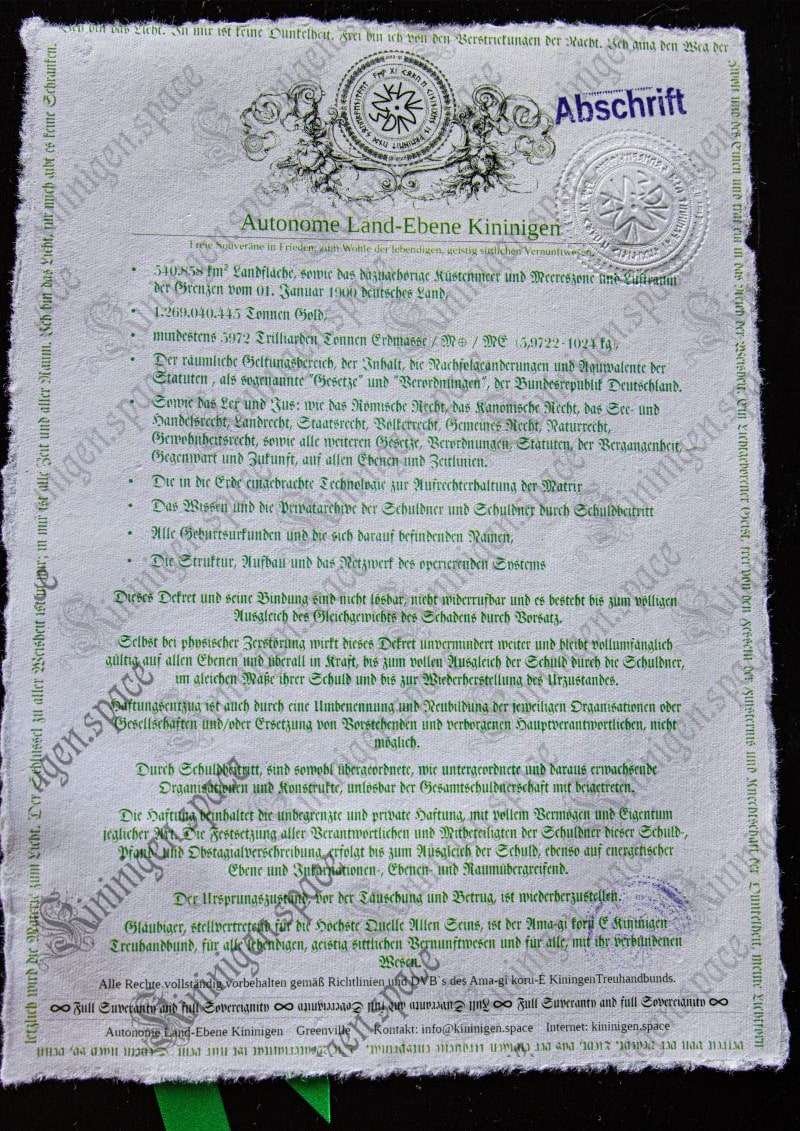 Ich bin das Licht. In mir ist keine Dunkelheit. Frei bin ich von den Verstrickungen der Nacht. Ich ging den Weg der
Abschrift
Autonome Land-Ebene Kininigen
Freie Souveräne in Frieden, zum Wohle der lebendigen, geistig sittlichen Vernunftwesen
• 540.858 km² Landfläche, sowie das dazugehörige Küstenmeer und Meereszone und Luftraum
der Grenzen vom 01. Januar 1900 deutsches Land,
• 1.269.040.445 Tonnen Gold,
• mindestens 5972 Trilliarden Tonnen Erdmasse / M⊕ / ME (5,9722·1024 kg),
• Der räumliche Geltungsbereich, der Inhalt, die Nachfolgeänderungen und Äquivalente der
Statuten , als sogenannte "Gesetze" und "Verordnungen", der Bundesrepublik Deutschland.
• Sowie das Lex und Jus: wie das Römische Recht, das Kanonische Recht, das See- und
Handelsrecht, Landrecht, Staatsrecht, Völkerrecht, Gemeines Recht, Naturrecht,
Gewohnheitsrecht, sowie alle weiteren Gesetze, Verordnungen, Statuten, der Vergangenheit,
Gegenwart und Zukunft, auf allen Ebenen und Zeitlinien.
• Die in die Erde eingebrachte Technologie zur Aufrechterhaltung der Matrix
• Das Wissen und die Privatarchive der Schuldner und Schuldner durch Schuldbeitritt
• Alle Geburtsurkunden und die sich darauf befindenden Namen,
• Die Struktur, Aufbau und das Netzwerk des operierenden Systems
Dieses Dekret und seine Bindung sind nicht lösbar, nicht widerrufbar und es besteht bis zum völligen
Ausgleich des Gleichgewichts des Schadens durch Vorsatz.
Selbst bei physischer Zerstörung wirkt dieses Dekret unvermindert weiter und bleibt vollumfänglich
gültig auf allen Ebenen und überall in Kraft, bis zum vollen Ausgleich der Schuld durch die Schuldner,
im gleichen Maße ihrer Schuld und bis zur Wiederherstellung des Urzustandes.
Haftungsentzug ist auch durch eine Umbenennung und Neubildung der jeweiligen Organisationen oder
Gesellschaften und/oder Ersetzung von Vorstehenden und verborgenen Hauptverantwortlichen, nicht
möglich.
Durch Schuldbeitritt, sind sowohl übergeordnete, wie untergeordnete und daraus erwachsende
Organisationen und Konstrukte, unlösbar der Gesamtschuldnerschaft mit beigetreten.
Die Haftung beinhaltet die unbegrenzte und private Haftung, mit vollem Vermögen und Eigentum
jeglicher Art. Die Festsetzung aller Verantwortlichen und Mitbeteiligten der Schuldner dieser Schuld-,
Pfand- und Obstagialverschreibung, erfolgt bis zum Ausgleich der Schuld, ebenso auf energetischer
Ebene und Informationen-, Ebenen- und Raumübergreifend.
Der Ursprungszustand, vor der Täuschung und Betrug, ist wiederherzustellen.
Gläubiger, stellvertretend für die Höchste Quelle Allen Seins, ist der Ama-gi koru-E Kininigen
Treuhandbund, für alle lebendigen, geistig sittlichen Vernunftwesen und für alle, mit ihr verbundenen
Wesen.
Alle Rechte vollständig vorbehalten gemäß Richtlinien und DVB´s des Ama-gi koru-E KiningenTreuhandbunds.
∞ Full Suveranty and full Sovereignity ∞ Full Suveranty and full Sovereignity ∞ Full Suveranty and full Sovereignity ∞
Autonome Land-Ebene Kininigen Greenville Kontakt: info@kininigen.space Internet: kininigen.space
letztlich wird die Materie zum Licht. Der Schlüssel zu aller Weisheit ist in mir; in mir ist alle Zeit und aller Raum. Ich bin das Licht, für mich gibt es keine Schranken.
Kininigen.space